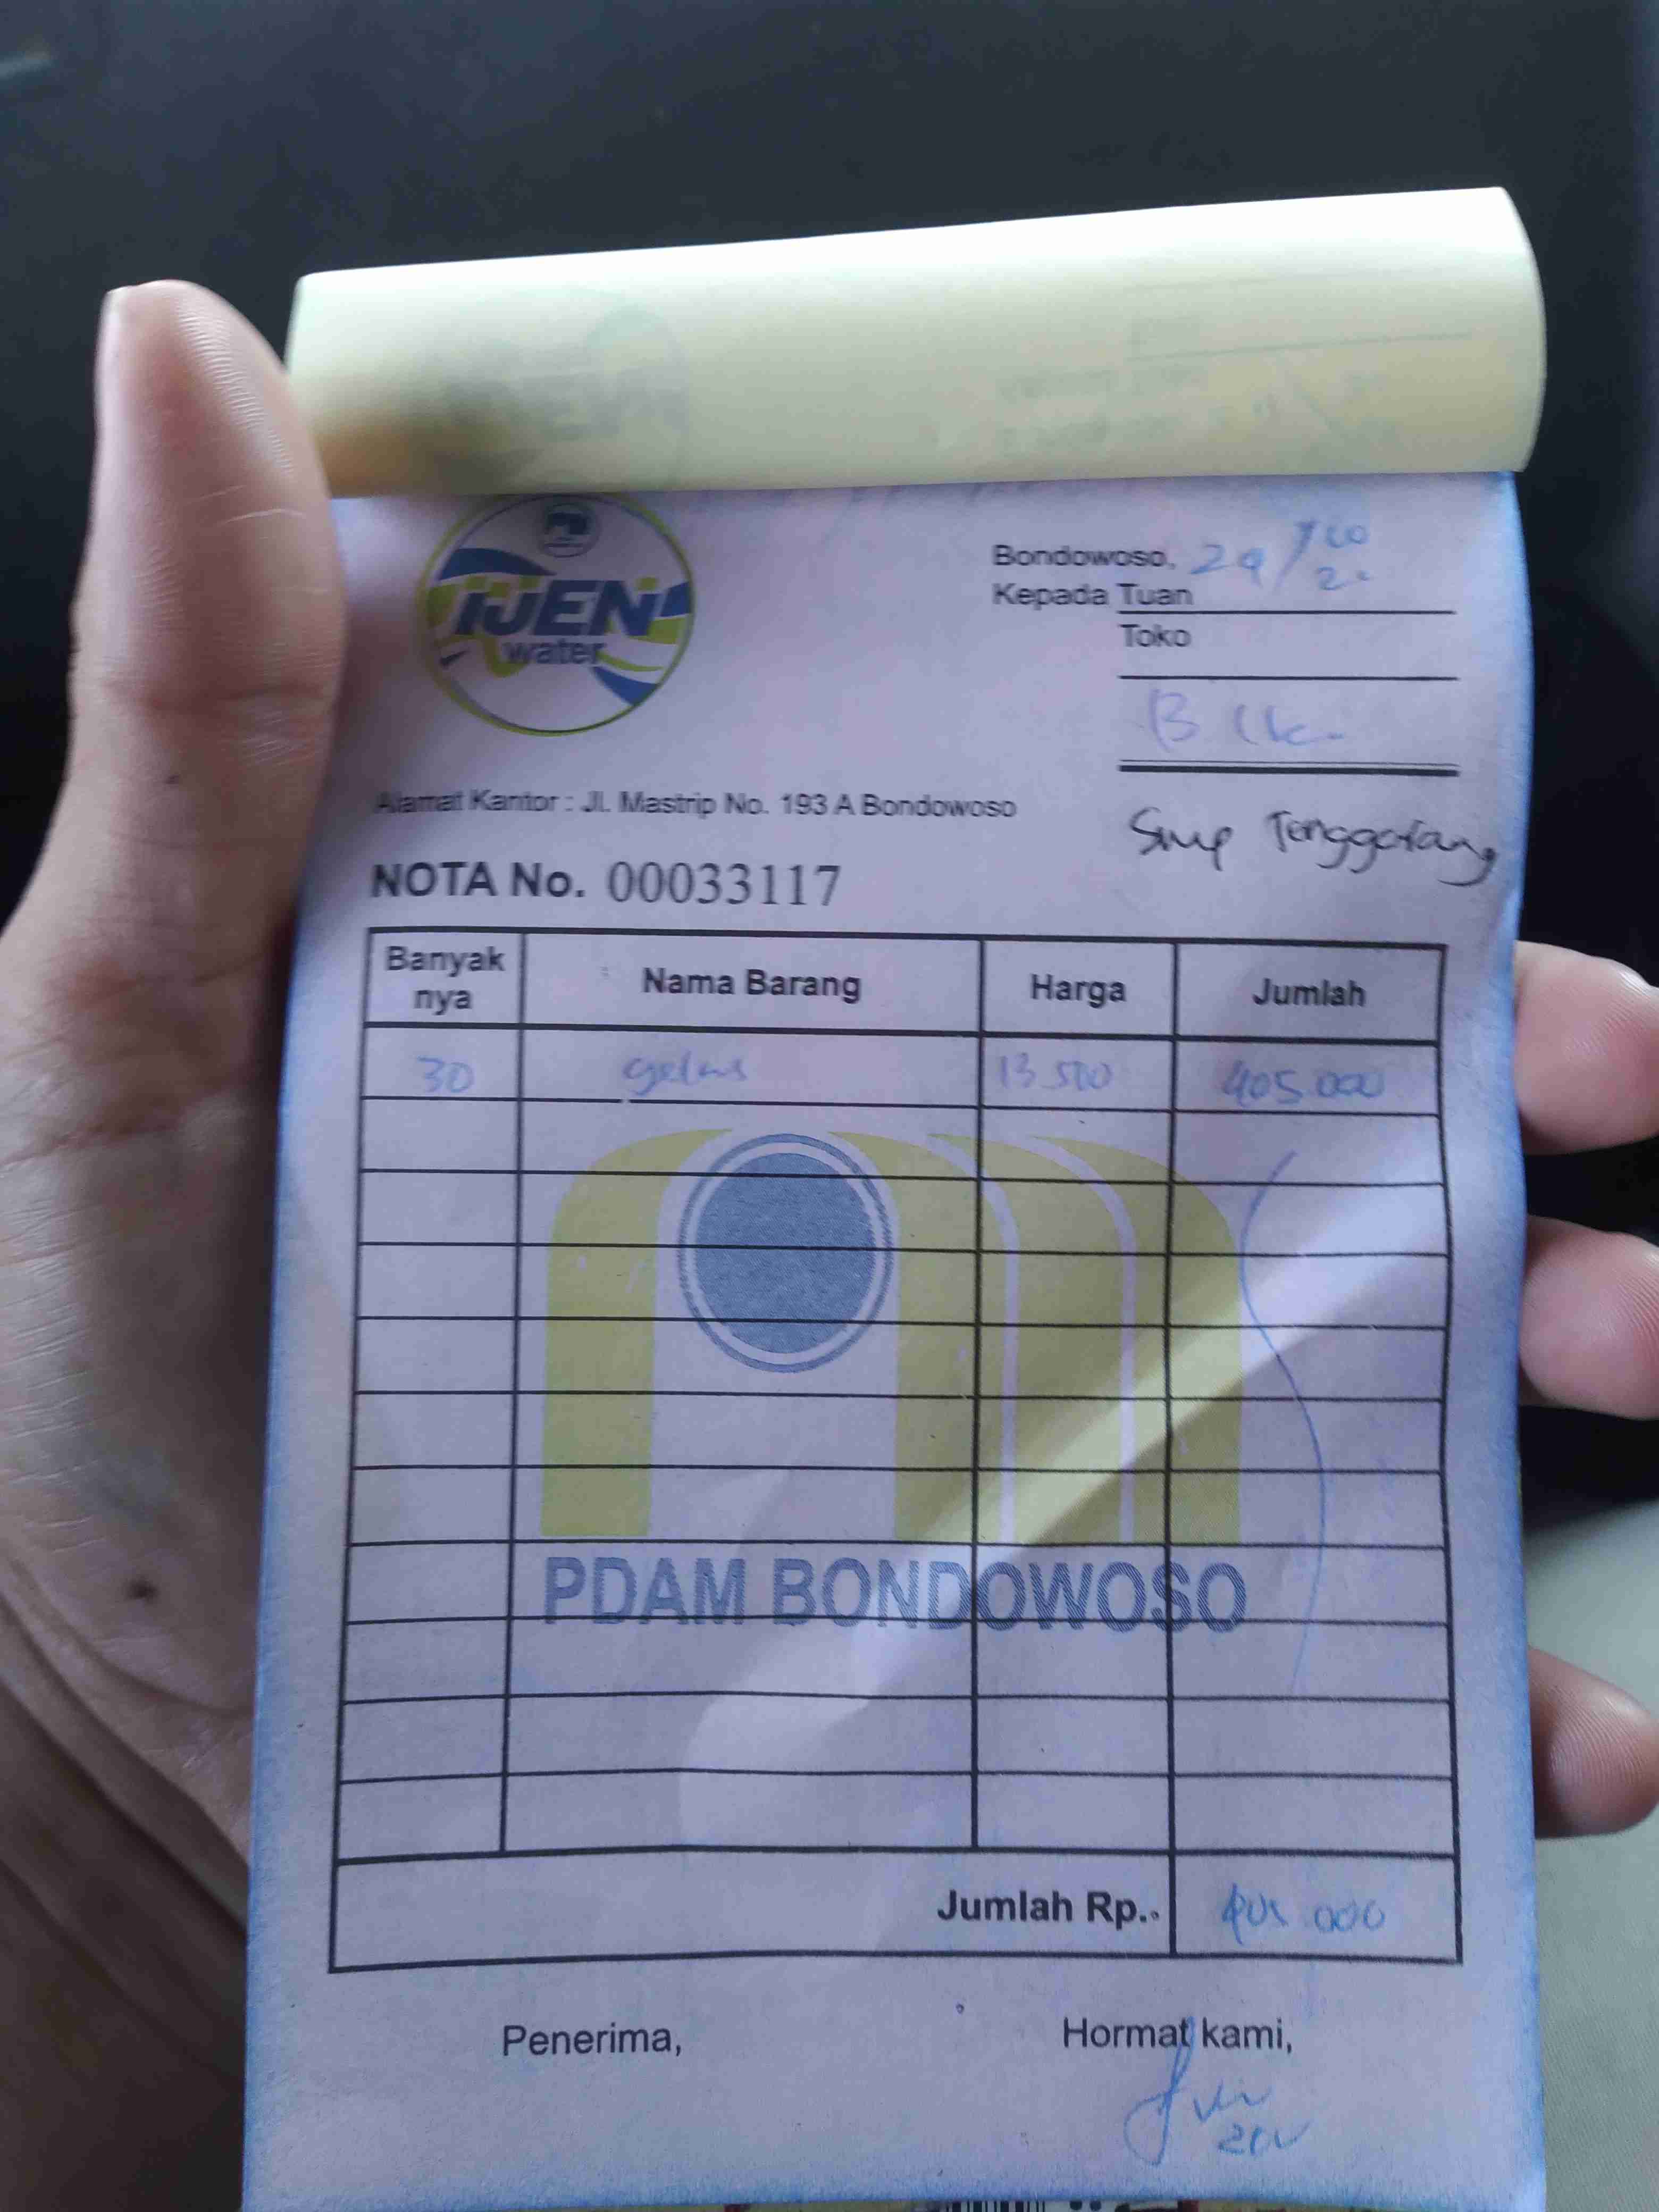 IJEN
water
Bondowoso, 29/10
Kepada Tuan
Toko
Alamat Kantor : Jl. Mastrip No. 193 A Bondowoso
Smp Tenggarang
NOTA No. 00033117
Banyak nya Nama Barang Harga Jumlah
30 gelas 13.500 405.000
PDAM BONDOWOSO
Jumlah Rp.. 405.000
Penerima, Hormat kami,